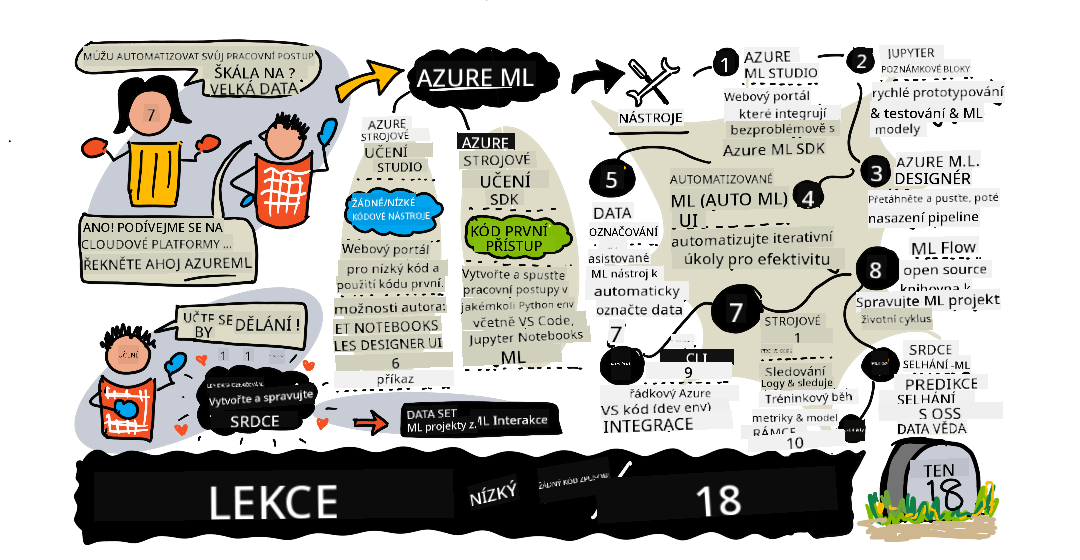 MŮŽU AUTOMATIZOVAT SVŮJ PRACOVNÍ POSTUP
ŠKÁLA NA ?
VELKÁ DATA
7
ANO! PODÍVEJME SE NA
CLOUDOVÉ PLATFORMY ...
ŘEKNĚTE AHOJ AZUREML
AZURE ML
AZURE
STROJOVÉ
UČENÍ
STUDIO
ŽÁDNÉ/NÍZKÉ
KÓDOVÉ NÁSTROJE
Webový portál
pro nízký kód a
použití kódu první.
možnosti autora:
ET NOTEBOOKS
LES DESIGNER UI
6
příkaz
AZURE
STROJOVÉ
UČENÍ
SDK
KÓD PRVNÍ
PŘÍSTUP
Vytvořte a spusťte
pracovní postupy v
jakémkoli Python env
včetně VS Code,
Jupyter Notebooks
ML
NÁSTROJE
1
AZURE
ML STUDIO
Webový portál
které integrují
bezproblémově s
Azure ML SDK
2
JUPYTER
POZNÁMKOVÉ BLOKY
rychlé prototypování
& testování & ML
modely
3
AZURE M.L.
DESIGNÉR
Přetáhněte a pusťte, poté
nasazení pipeline
4
AUTOMATIZOVANÉ
ML (AUTO ML)
UI
automatizujte iterativní
úkoly pro efektivitu
5
DATA
OZNAČOVÁNÍ
asistované
ML nástroj k
automaticky
označte data
7
CLI
9
řádkový Azure
VS kód (dev env)
INTEGRACE
7
STROJOVÉ
1
Sledování
Logy & sleduje
Tréninkový běh
metriky & model
RÁMCE
10
8
ML Flow
open source
knihovna k
Spravujte ML projekt
životní cyklus
SRDCE
SELHÁNÍ -ML
PREDIKCE
SELHÁNÍ
S OSS
DATA VĚDA
UČTE SE
BY
DĚLÁNÍ !
UČENÍ
1 1
Vytvořte a spravujte
SRDCE
DATA SET
ML projekty z.
ML Interakce
LEKCE
NÍZKÝ
18
TEN
18